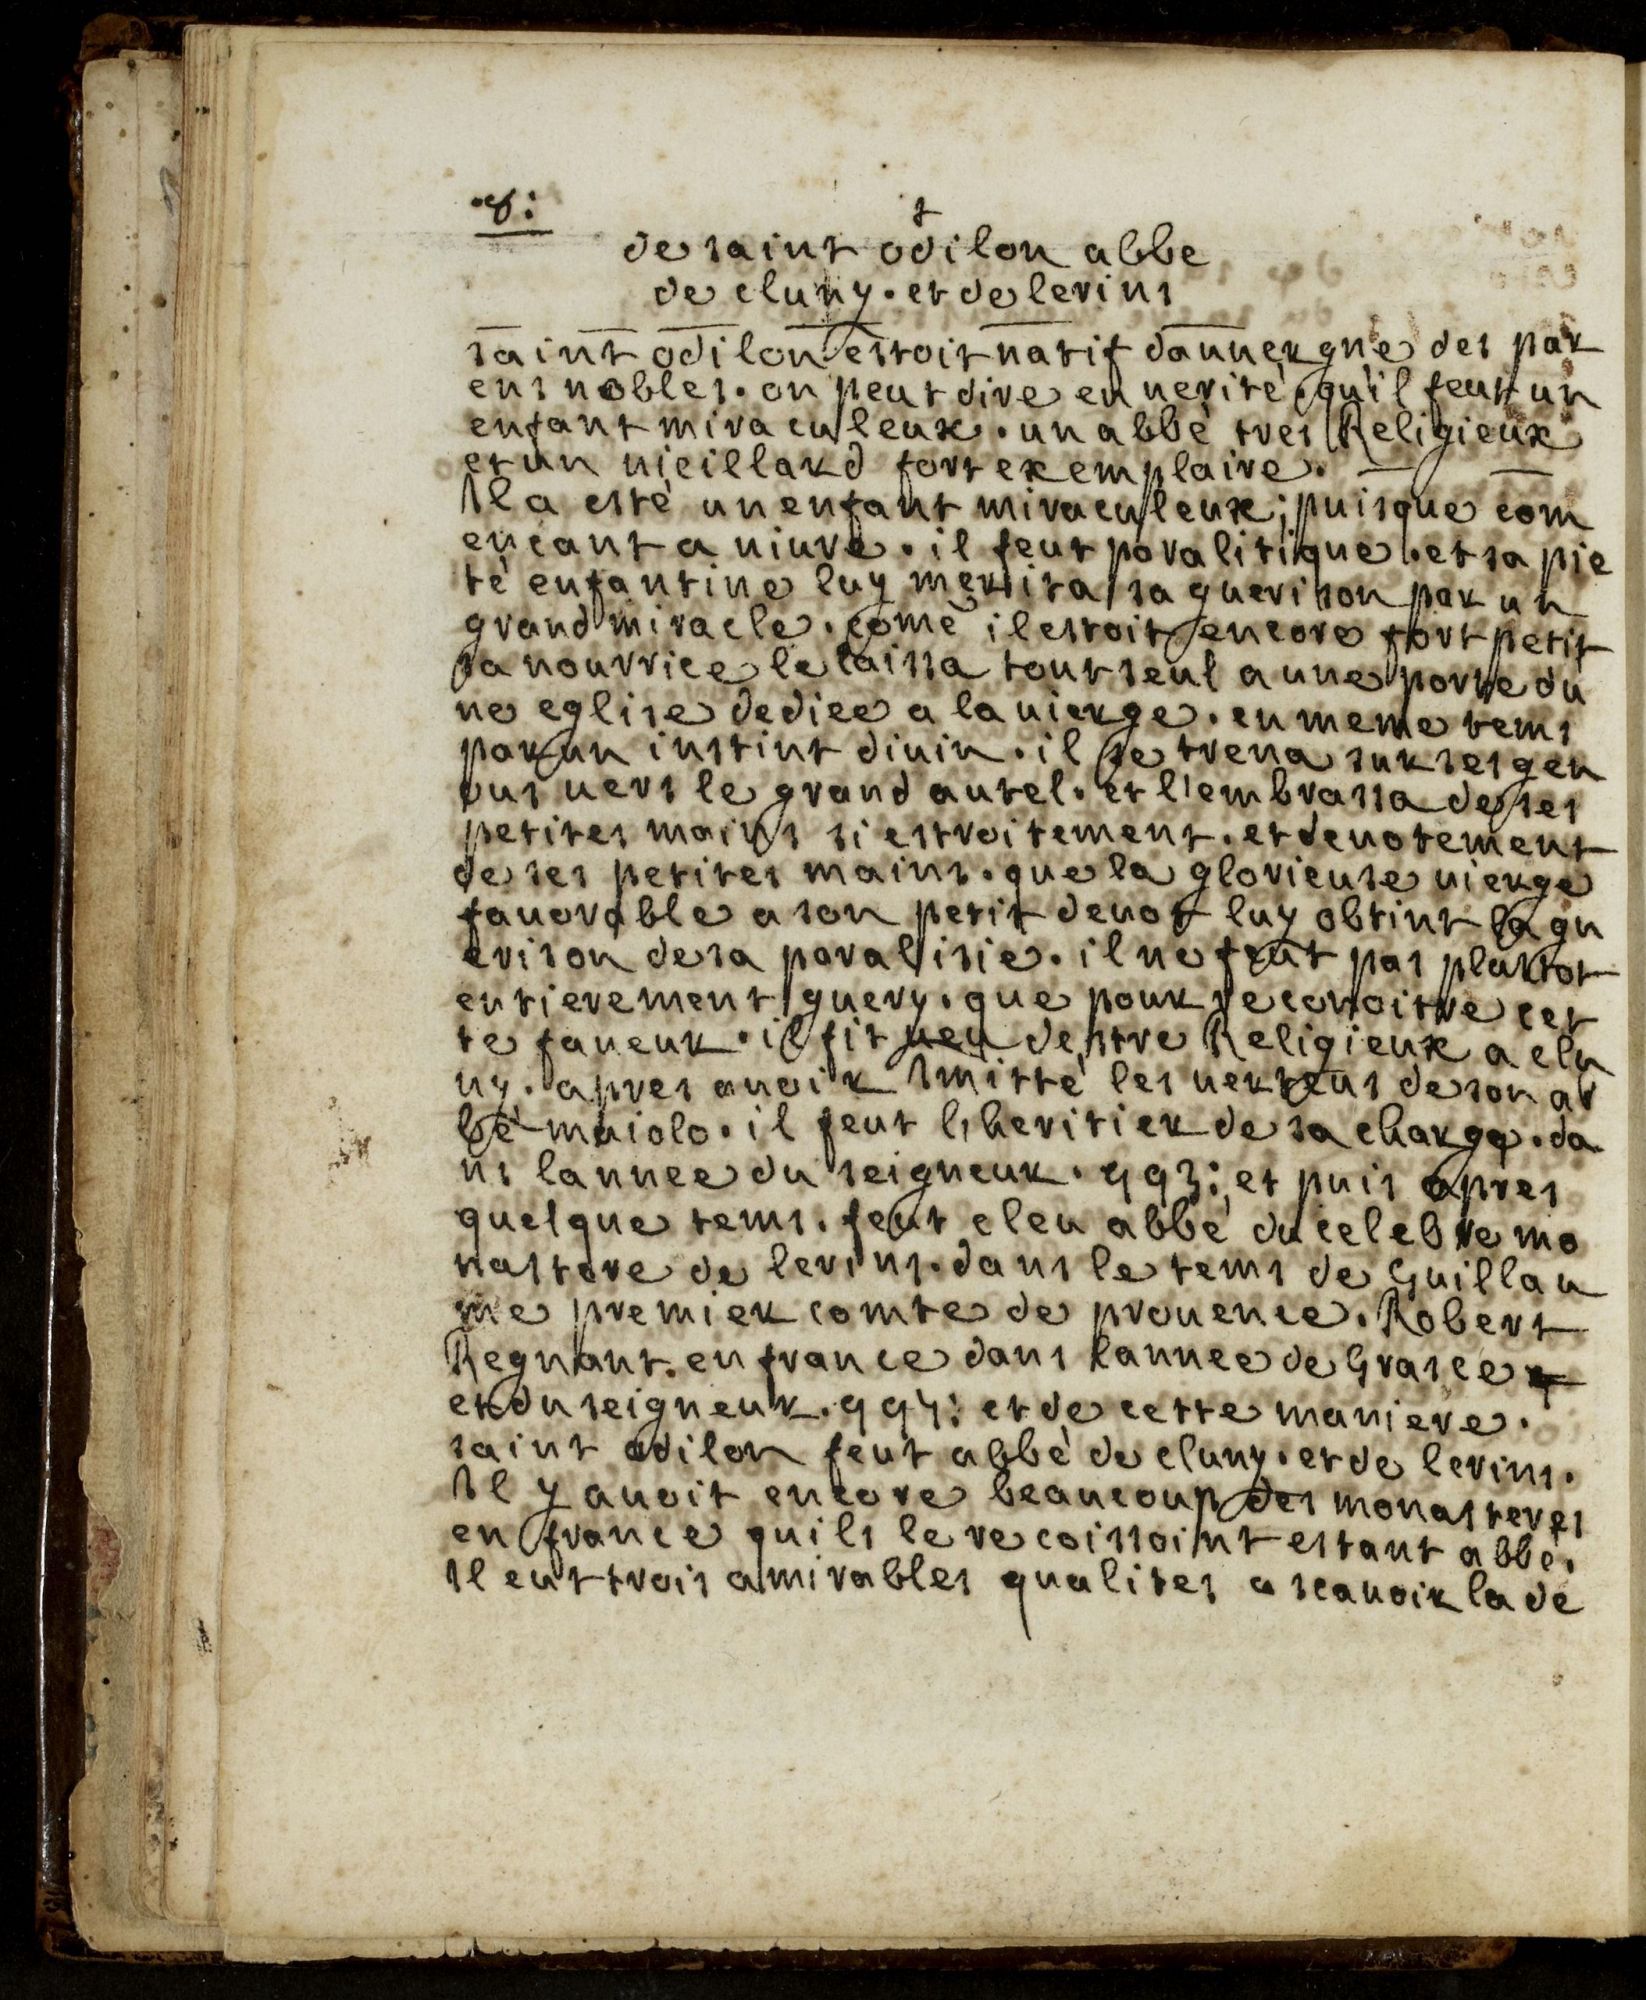 .8:
de saint odilon abbe
de cluny. et de lerins
saint odilon estoit natif dauuergne des par
ens nobles. on peut dire en uerité qu'il feut un
enfant miraculeux. un abbè tres Religieux
et un uieillard fort exemplaire.
Il a estè un enfant miraculeux; puisque com
encant a uiure. il feut paralitique. et sa pie
té enfantine luy merita sa guerison par un
grand miracle. come il estoit encore fort petit
sa nourrice le laissa tout seul a une porte du
ne eglise dediee a la uierge. en meme tems
par un instint diuin. il se trena sur ses gen
ous uers le grand autel. et l'embrassa de ses
petites mains si estroitement. et deuotement
de ses petites mains. que la glorieuse uierge
fauorable a son petit deuot luy obtint la gu
erison de sa paralisie. il ne feut pas plustot
entierement guery. que pour reconoitre cet
te faueur. il fit ueu destre Religieux a clu
ny. apres auoir Imittè les uerteus de son ab
bè maiolo. il feut l'heritier de sa charge. da
ns lannee du seigneur. 993; et puis apres
quelque tems. feut eleu abbé du celebre mo
nastere de lerins. dans le tems de Guillau
me premier comte de prouence. Robert
Regnant. en france dans lannee de Grasce
et du seigneur. 997: et de cette maniere.
saint odilon feut abbè de cluny. et de lerins.
Il y auoit encore beaucoup des monasteres
en france quils le recoissoint estant abbè.
Il eut trois amirables qualites a scauoir la de